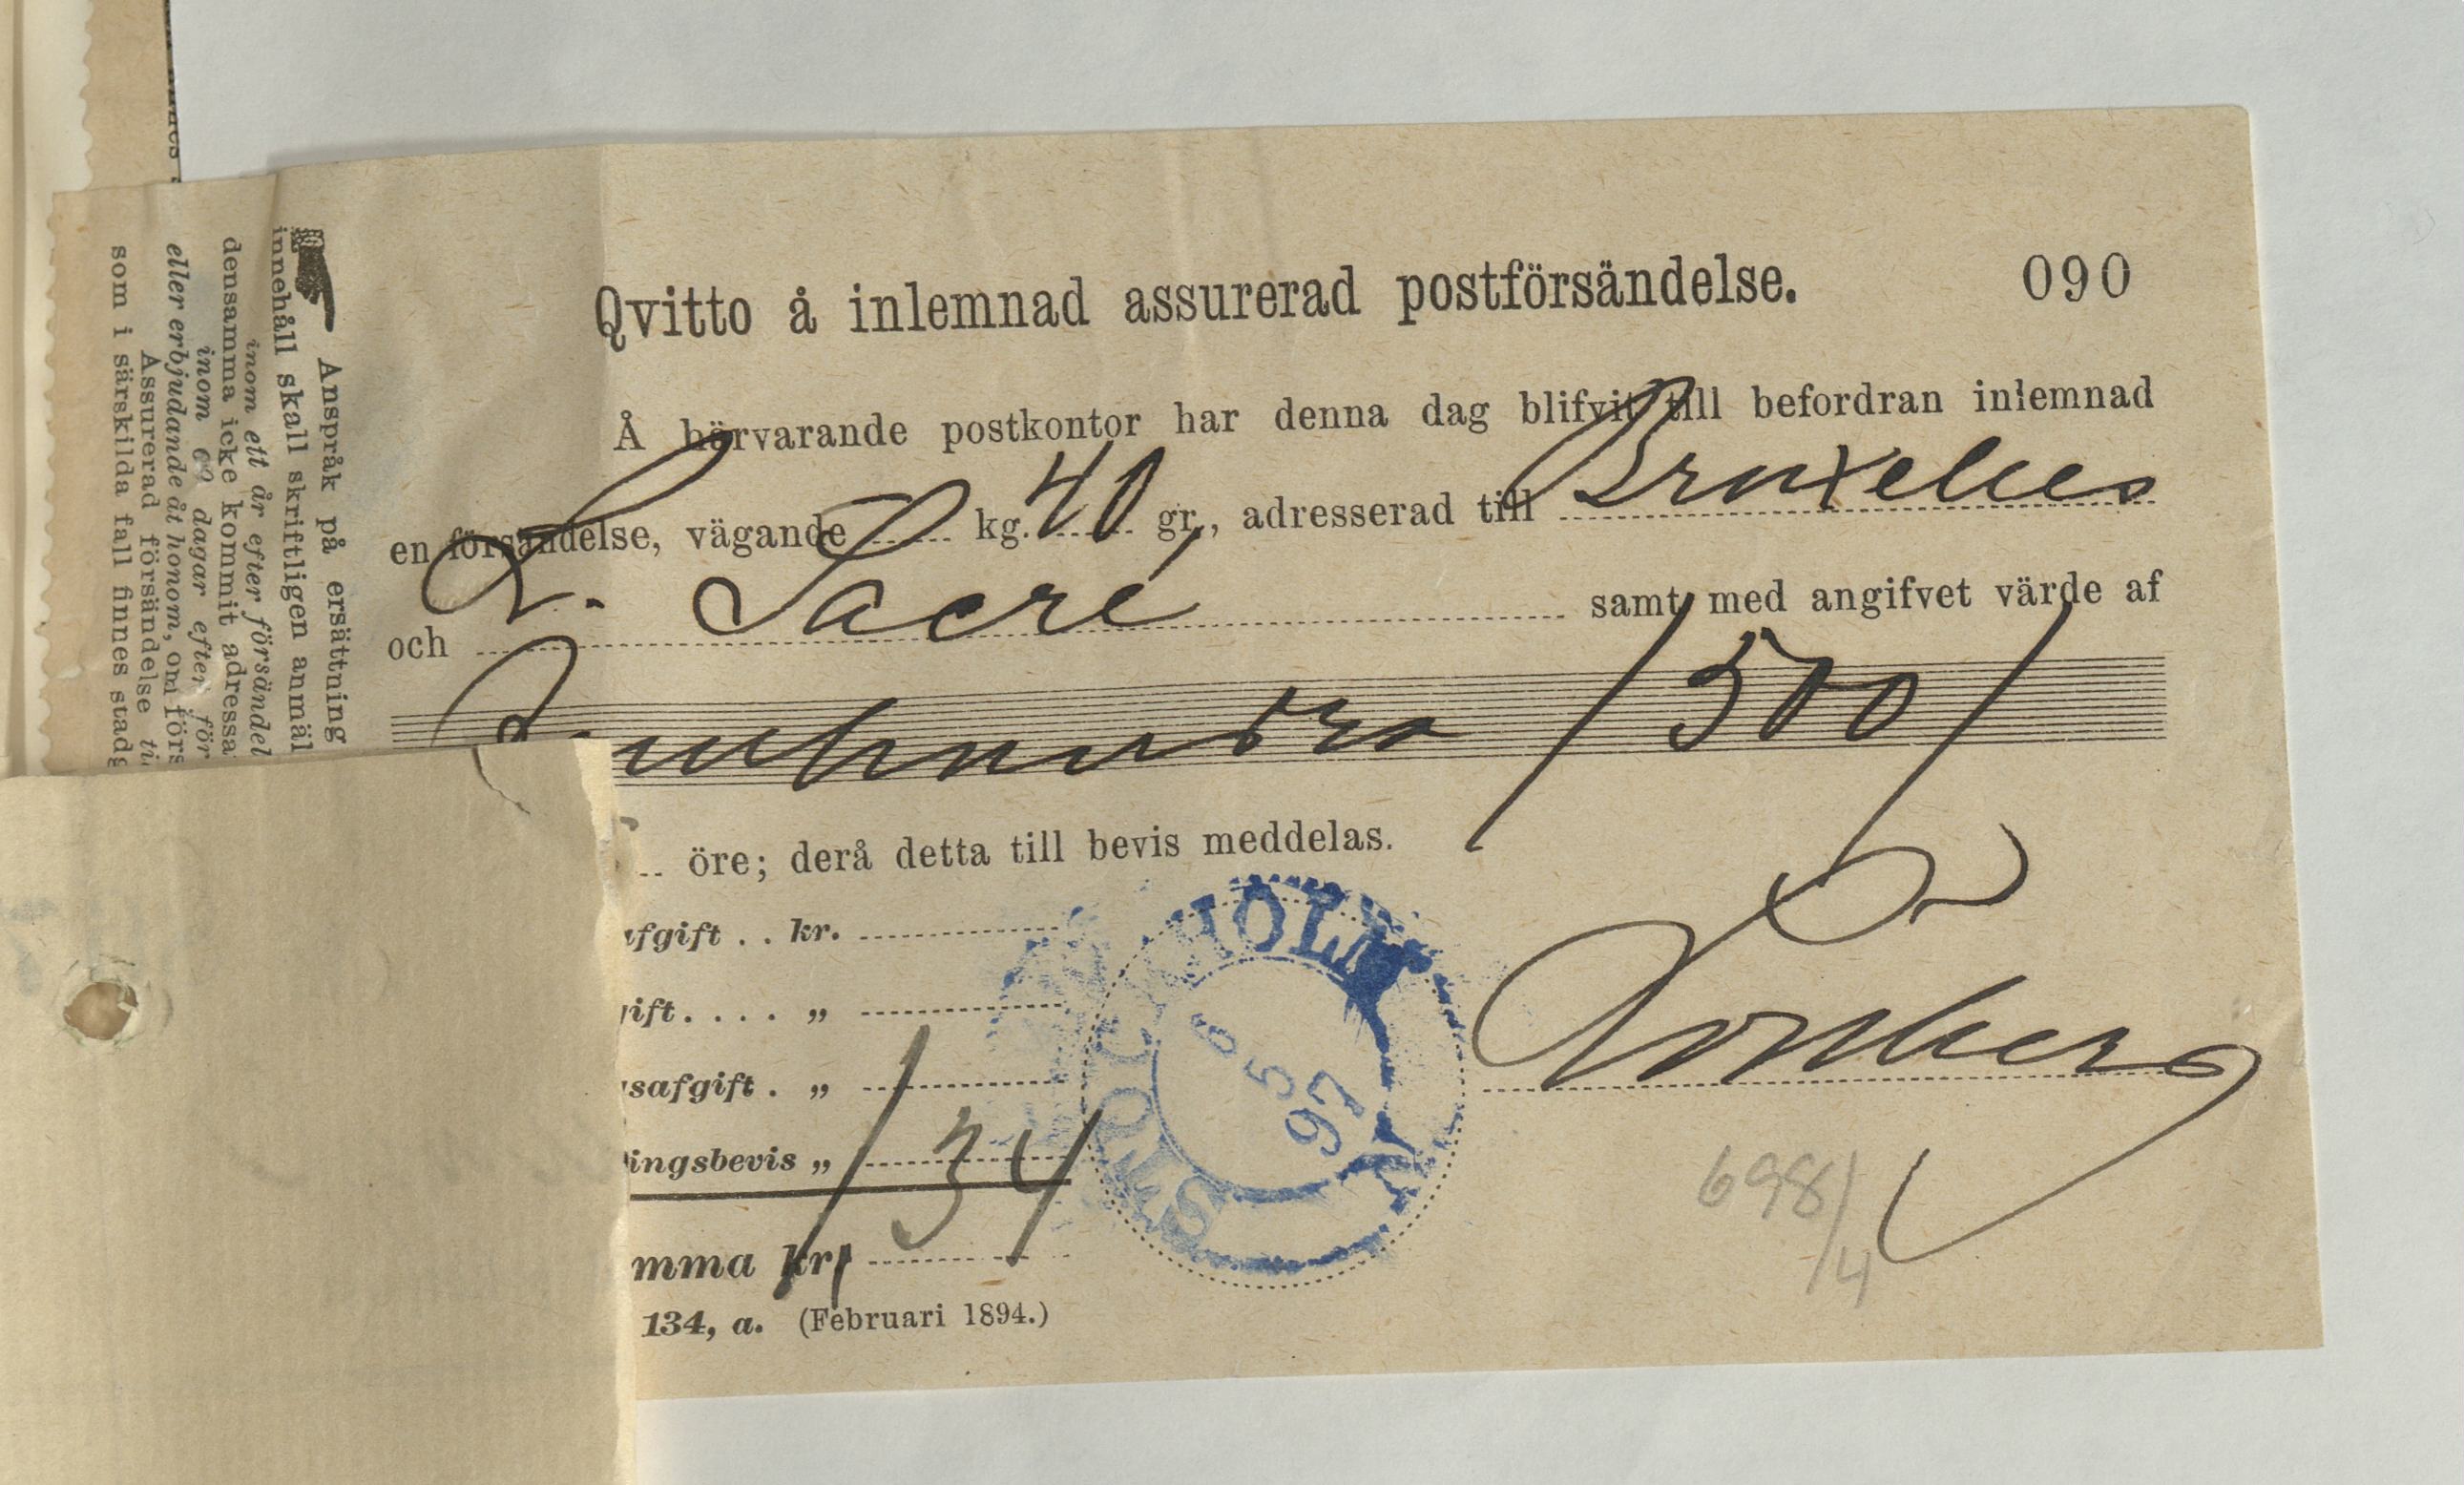 Qvitto å inlemnad assurerad postförsändelse. 090
Å härvarande postkontor har denna dag blifvit till befordran inlemnad
en försändelse, vägande kg. 40 gr., adresserad till Bruxelles
och L. Sacré samt med angifvet värde af
Femhundra /500/
öre; derå detta till bevis meddelas.
afgift . . kr.
gift. . . . „
safgift . „
ingsbevis „
/34/
mma kr.
134, a. (Februari 1894.)
STOCKHOLM
6
5
97
698/4
Anspråk på ersättning
innehåll skall skriftligen anmäl
inom ett år efter försändel
densamma icke kommit adressa
inom dagar efter för
eller erbjudande åt honom, om förs
Assurerad försändelse
som i särskilda fall finnes stadg